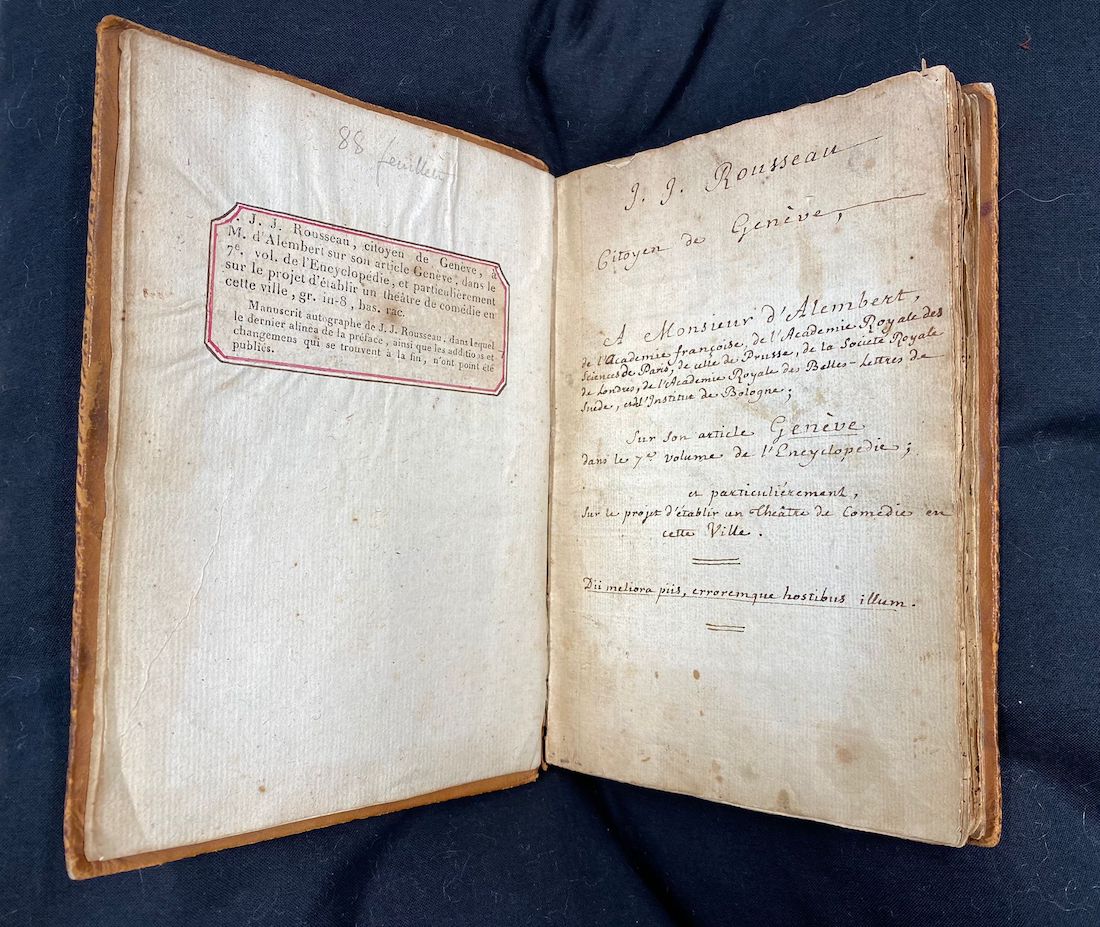 88 feuillets
J. J. Rousseau, citoyen de Genève, à
M. d'Alembert sur son article Genève, dans le
7e. vol. de l'Encyclopédie, et particulièrement
sur le projet d'établir un théâtre de comédie en
cette ville, gr. in-8, bas. rac.
Manuscrit autographe de J. J. Rousseau, dans lequel
le dernier alinea de la préface, ainsi que les additions et
changemens qui se trouvent à la fin, n'ont point été
publiés.
J. J. Rousseau
Citoyen de Genève,
A Monsieur d'Alembert,
de l'Académie françoise, de l'Academie Royale des
Sciences de Paris, de celle de Prusse, de la Societé Royale
de Londres, de l'Academie Royale des Belles-Lettres de
Suéde, et de l'Institut de Bologne;
Sur son article Genève
dans le 7e volume de l'Encyclopédie;
et particuliérement,
Sur le projet d'établir un Théâtre de Comédie en
cette Ville.
Dii meliora piis, erroremque hostibus illum.